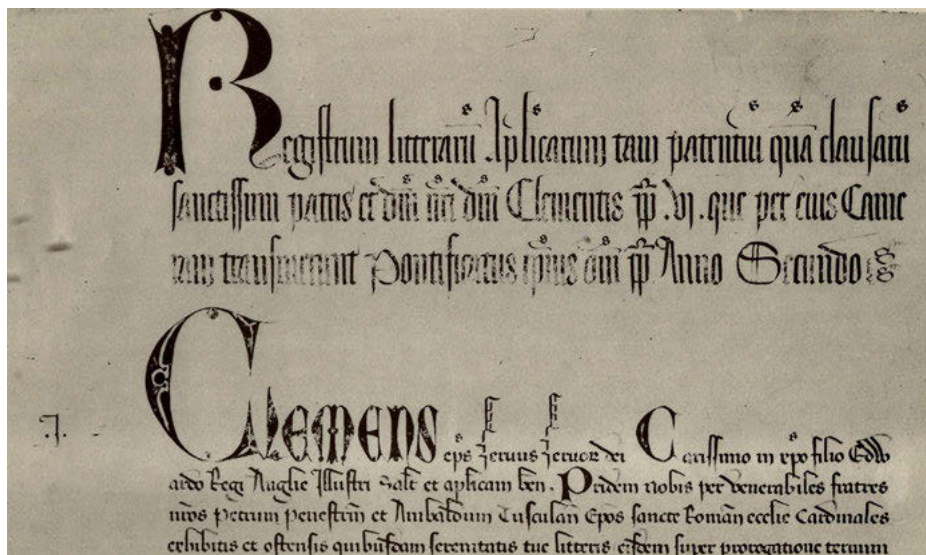 Registrum litterarū Ap̄licarum tam patentiū quā clausarū
sanctissimi patris et dn̄i nr̄i dn̄i Clementis pp̄ .vj. que per eius Came
ram transiuerunt Pontificatus ip̄ius dn̄i pp̄ Anno Secundo
.J.
CLEMENS ep̄s seruus seruor dei Carissimo in xp̄o filio Edw
ardo Regi Anglie Illustri Salt et aplicam ben. Pridem nobis per venerabiles fratres
nr̄os Petrum Penestrin̄ et Anibaldum Tusculan̄ Ep̄os sancte Roman̄ ecclie Cardinales
exhibitis et ostensis quibusdam serenitatis tue litteris eisdem super prorogatione terminī